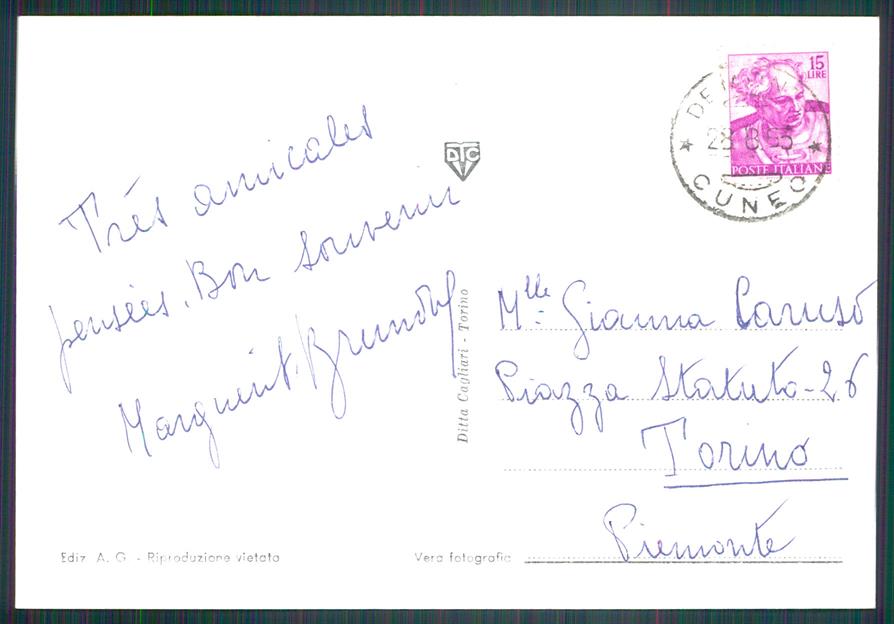 Très amicales
pensées. Bon Souvenir
Marguerit. Brundolf
DTC
Ditta Cagliari - Torino
15
LIRE
POSTE ITALIANE
DE
28 8
CUNEO
Mlle: Gianna Caruso
Piazza Statuto-26
Torino
Piemonte
Ediz A. G - Riproduzione vietata
Vera fotografia